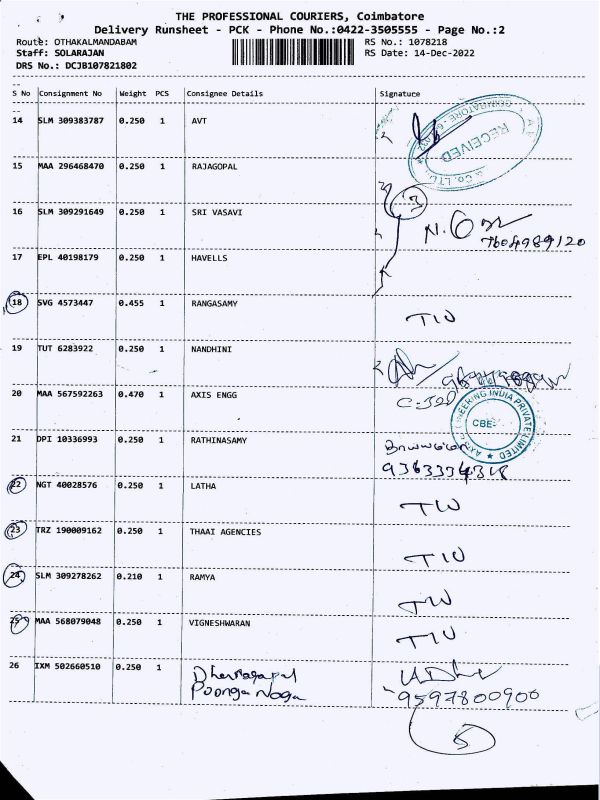 THE PROFESSIONAL COURIERS, Coimbatore
Delivery Runsheet - PCK - Phone No.:0422-3505555 - Page No.:2
Route: OTHAKALMANDABAM RS No.: 1078218
Staff: SOLARAJAN RS Date: 14-Dec-2022
DRS No.: DCJB107821802
S No Consignment No Weight PCS Consignee Details Signature
14 SLM 309383787 0.250 1 AVT
RECEIVED
15 MAA 296468470 0.250 1 RAJAGOPAL
3
16 SLM 309291649 0.250 1 SRI VASAVI
7604989120
17 EPL 40198179 0.250 1 HAVELLS
18 SVG 4573447 0.455 1 RANGASAMY
19 TUT 6283922 0.250 1 NANDHINI
20 MAA 567592263 0.470 1 AXIS ENGG
CBE-
21 DPI 10336993 0.250 1 RATHINASAMY
9363334318
22 NGT 40028576 0.250 1 LATHA
23 TRZ 190009162 0.250 1 THAAI AGENCIES
24 SLM 309278262 0.210 1 RAMYA
25 MAA 568079048 0.250 1 VIGNESHWARAN
26 IXM 502660510 0.250 1
Poonga Noga
9597800900
5